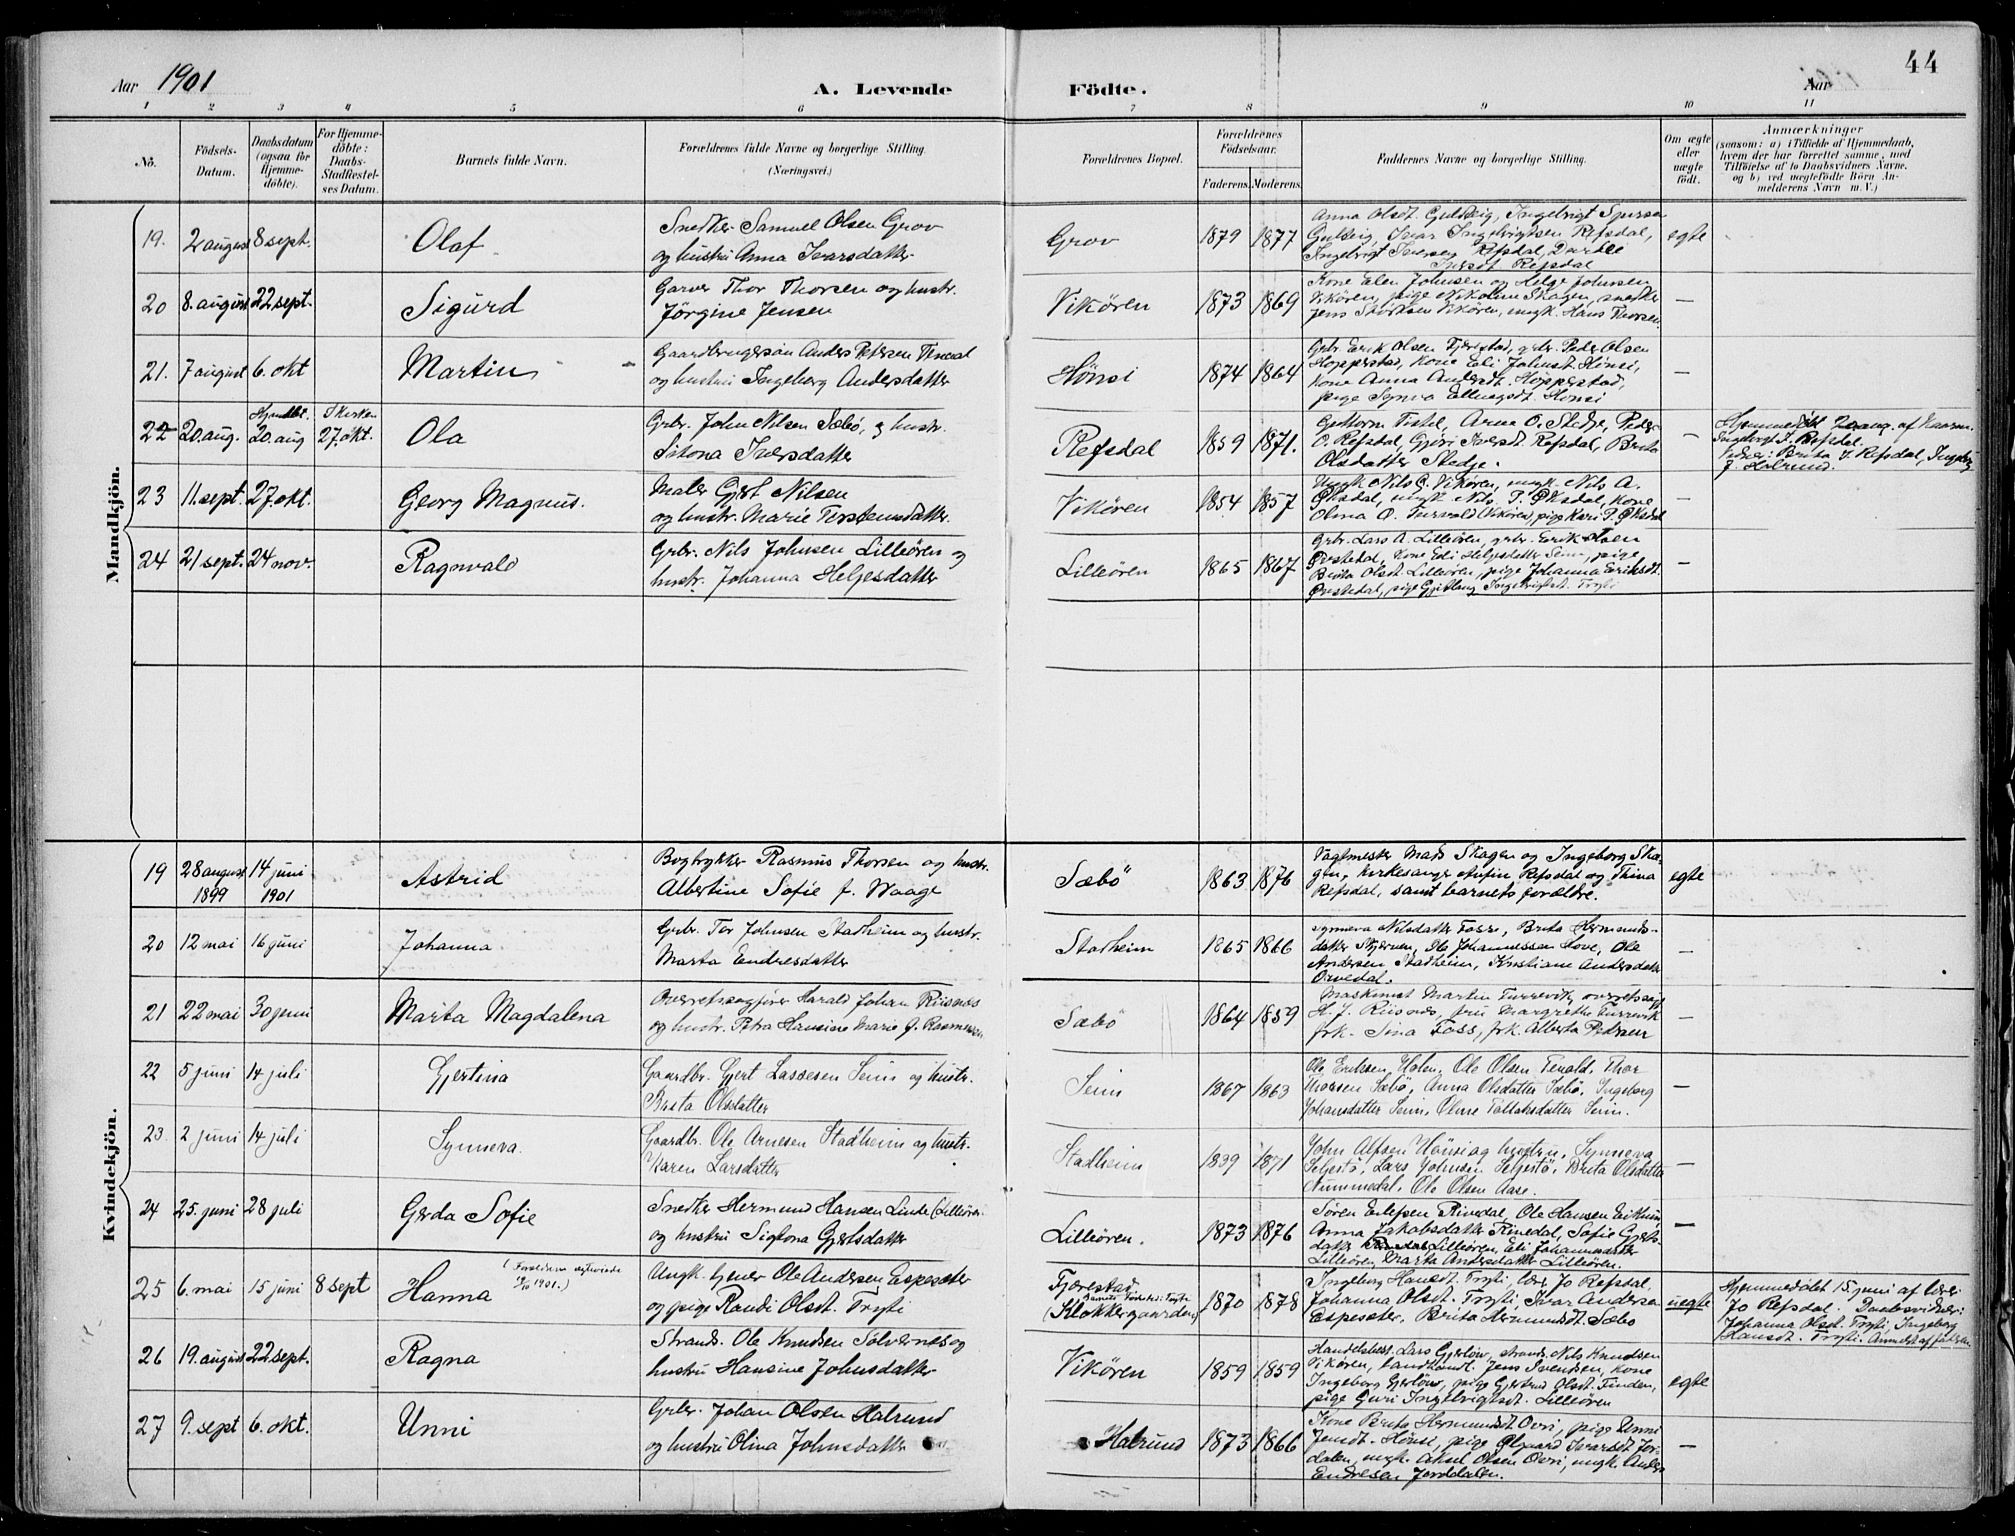 Aar 1901
A. Levende Födte.
44
Aar
1 2 3 4 5 6 7 8 9 10 11
No.
Födsels-Datum.
Daabsdatum (ogsaa for Hjemme-döbte).
For Hjemme-döbte: Daabs-Stadfæstel-ses Datum.
Barnets fulde Navn.
Forældrenes fulde Navne og borgerlige Stilling. (Næringsvei.)
Forældrenes Bopæl.
Forældrenes Födselsaar.
Faderens. Moderens.
Faddernes Navne og borgerlige Stilling.
Om ægte eller uægte födt.
Anmærkninger
(saasom: a) i Tilfælde af Hjemmedaab,
hvem der har forrettet samme, med
Tilföielse af to Daabsvidners Navne.
og b) ved uægtefödte Börn An-
melderens Navn m. V.)
Mandkjön.
19. 2 august 8 sept. Olaf
Snedker Samuel Olsen Grov
og hustru Anna Ivarsdatter
Grov 1879 1877
Anna Olsdt. Gulteig, Ingebrigt
Gulteig, Ivar Ingebrigtsen Refsdal,
Ingebrigt Iversen Refsdal,
Refsdal
egte
20 8. august 22 sept. Sigurd
Garver Thor Thorsen og hustr.
Jörgine Jensen
Vikören 1873 1869
Kone Elen Johnsen og Helge Johnsen
Vikören, pige Nikoline Skagen, snedker
Jens Vikören, ungk. Hans Thorsen.
—
21. 7 august 6. okt Martin
Gaardbrugersøn Anders Petersen
og hustru Ingeberg Andersdatter
Hönsi 1874 1864
Grbr. Erik Olsen Fjærestad, grbr. Peder Olsen
Hopperstad, Kone Eli Johnsdt. Hönsi,
Kone Anna Andersdt. Hopperstad,
pige Synva Hönsi
—
22 20. aug. Hjmdbt. 20. aug I kirken 27. okt. Ola
Grbr. John Nilsen Sæbö, og hustr.
Iversdatter
Refsdal 1859 1871.
Arne O. Stedje, Peder
O. Refsdal, Gjöri Iversdt. Refsdal, Brita
Olsdatter Stedje.
—
Hjemmedöbt 20 aug. af
Ingeborg J. Refsdal.
Vidner: Brita J. Refsdal, Ingebrg
J. Halrund.
23 11. sept. 27. okt. Georg Magnus.
Maler Gjert Nilsen
og hustr. Marie Torstensdatter.
Vikören 1854 1857
Ungk Nils G. Vikören, ungk. Nils A.
Öksdal, ungk. Nils P. Öksdal, Kone
Olina O. Vikören, pige Kari P. Öksdal
—
24 21 sept. 24 nov. Ragnvald
Grbr. Nils Johnsen Lilleören og
hustr. Johanna Helgesdatter
Lilleören 1865 1867.
Grbr. Lars A. Lilleören, grbr. Erik Olsen
Övstedal, Kone Eli Helgesdatter Seim, pige
Brita Olsdt. Lilleören, pige Johanna Eriksdt.
Övstedal, pige Gjertlaug Ingebrigtsdt. Tryti
—
Kvindekjön.
19 28 august 1899 14 juni 1901 Astrid
Bogtrykker Rasmus Thorsen og hustr.
Albertine Sofie f. Waage
Sæbö 1863 1876
Vagtmester Mads Skagen og Ingeborg Ska-
gen, kirkesanger Refsdal og Thina
Refsdal, samt barnets forældre.
egte
20 12 mai 16 juni Johanna
Grbr. Tor Johnsen Stadheim og hustr.
Marta Endresdatter
Stadheim 1865 1866
Synneva Nilsdatter Fosse, Brita Hermunds-
datter Skjerven, Ole Johannessen Hove, Ole
Andersen Stadheim, Kristiane Andersdatter
Orvedal.
—
21 22 mai 30 juni Marta Magdalena
Overretssagförer Harald Johan Riisnæs
og hustr. Petra Hansine Marie G. Rasmussen
Sæbö 1864 1859
Maskinist Martin Turrevik, overretssagf
H. J. Riisnæs, fru Margrethe Turrevik
frk. Sina Foss, frk. Alberta
—
22 5 juni 14 juli Gjertina
Gaardbr. Gjert Lassesen Seim og hustr.
Brita Olsdatter
Seim 1867 1863
Ole Eriksen Holen, Ole Olsen Tenold, Thor
Thorsen Sæbö, Anna Olsdatter Sæbö, Ingeborg
Johansdatter Seim, Seim.
—
23. 2 juni 14 juli Synneva.
Gaardbr. Ole Arnesen Stadheim og hustr.
Karen Larsdatter
Stadheim 1839 1871
John Alfsen Hönsi og hustru, Synneva
Seljestö, Lars Johnsen Seljestö, Brita Olsdatter
Nummedal, Ole Olsen Aase.
—
24 25. juni 28 juli Gerda Sofie
Snedker Hermund Hansen Linde (Lilleören
og hustru Sigtona Gjertsdatter
Lilleören. 1873 1876
Sören Erlefsen Rinedal, Ole Hansen
Anna Jakobsdatter Rinedal, Sofie Gjerts-
datter Lilleören, Eli Johannesdatter
Lilleören, Marta Andersdatter Lilleören.
—
25 6. mai 15 juni 8 sept Hanna
(Forældrene egteviede 1901.)
Ungk. Gjener Ole Andersen Espeseter
og pige Randi Olsdt. Tryti
Fjærestad
(Stokkergaarden) 1870 1878
Ingeborg Hansdt. Tryti, lær. Jo Refsdal,
Johanna Olsdt. Tryti, Ivar Andersen
Espeseter, Brita Hermundsdt. Sæbö
uegte
Hjemmedöbt 15. juni af lærer
Jo Refsdal. Daabsvidner:
Johanna Olsdt. Tryti, Ingeborg
Hansdt. Tryti. Anmeldt af faderen
26 19. august 22. sept. Ragna
Strands. Ole Knudsen Sølvernes og
hustru Hansine Johnsdatter
Vikören 1859 1859
Handelsbest. Lars Gjerlöw, strands. Nils Knudsen
Vikören, landhandl. Jens Svendsen, kone
Ingeborg Gjerlöw, pige Gjertrud Olsdt. Finden,
pige Guri Ingebrigtsdt. Lilleören
egte
27 9. sept 6. okt. Unni
Grbr. Johan Olsen Halrund
og hustru Olina Johnsdatter
Halrund 1873 1866
Kone Brita Hermundsdt. Ovri, pige Unni
Jensdt. Hönsi, pige Olgaard Ivarsdt Jor-
dalen, ungk. Aksel Olsen Ovri, ungk. Anders
Endresen Jorddalen.
—